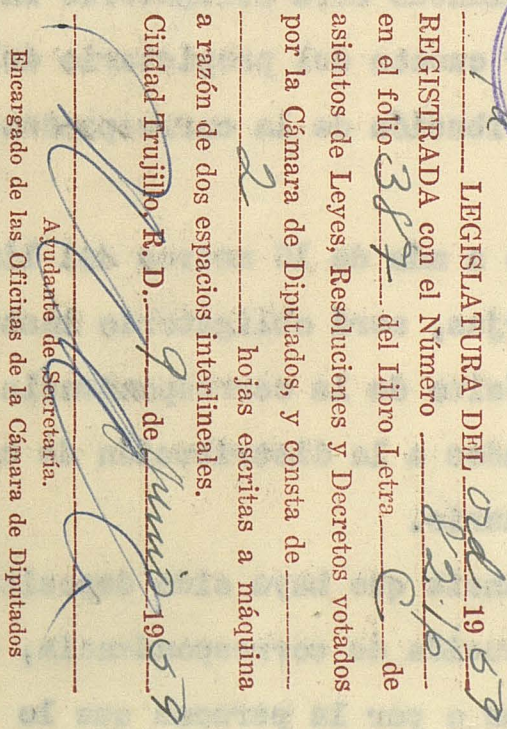 1a LEGISLATURA DEL Ord 1959
REGISTRADA con el Número 8216
en el folio 387 del Libro Letra C de
asientos de Leyes, Resoluciones y Decretos votados
por la Cámara de Diputados, y consta de
2 hojas escritas a máquina
a razón de dos espacios interlineales.
Ciudad Trujillo, R. D. 9 de Junio 1959
Ayudante de Secretaría.
Encargado de las Oficinas de la Cámara de Diputados